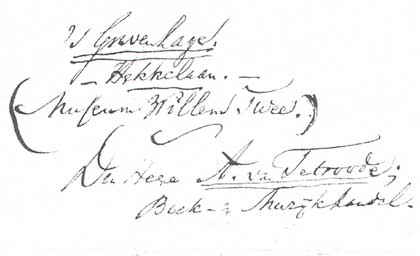 's Gravenhage.
– Hekkelaan. –
(Museum Willem Twee.)
Den Heer A. van Tetroode;
Boek- & Muzijkhandel.